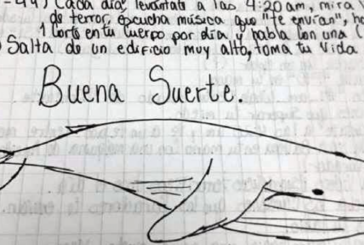 -49) Cada día levantate a las 4:20 am, mira
de terror, escucha música que "te envían",
1 corte en tu cuerpo por día y habla con una
Salta de un edificio muy alto, toma tu vida.
Buena Suerte.